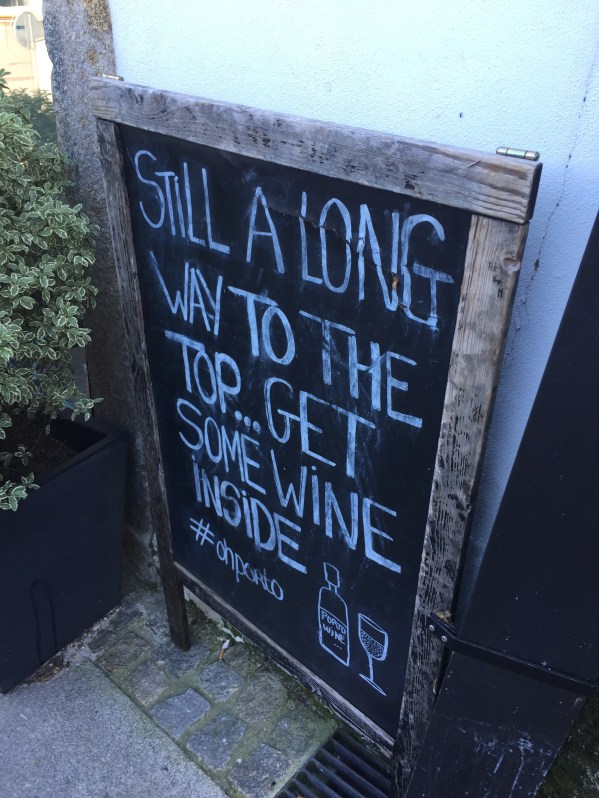 STILL A LONG
WAY TO THE
TOP... GET
SOME WINE
INSIDE
#ohporto
WINE